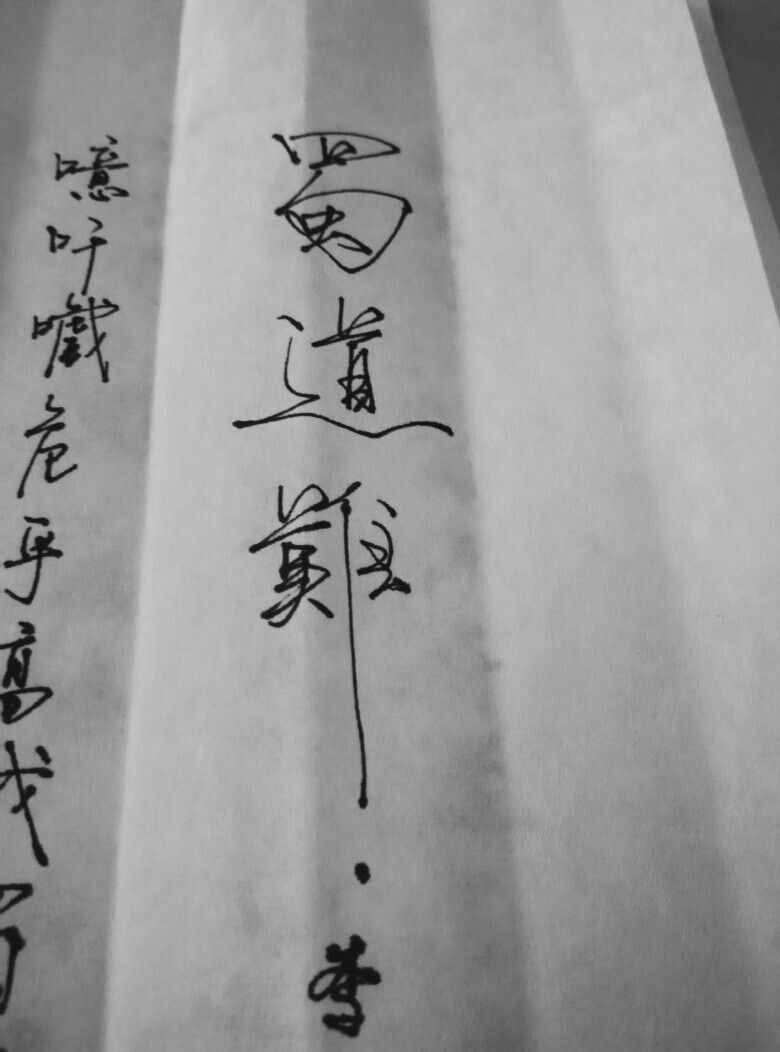 蜀道難·李
噫吁嚱危乎高哉蜀